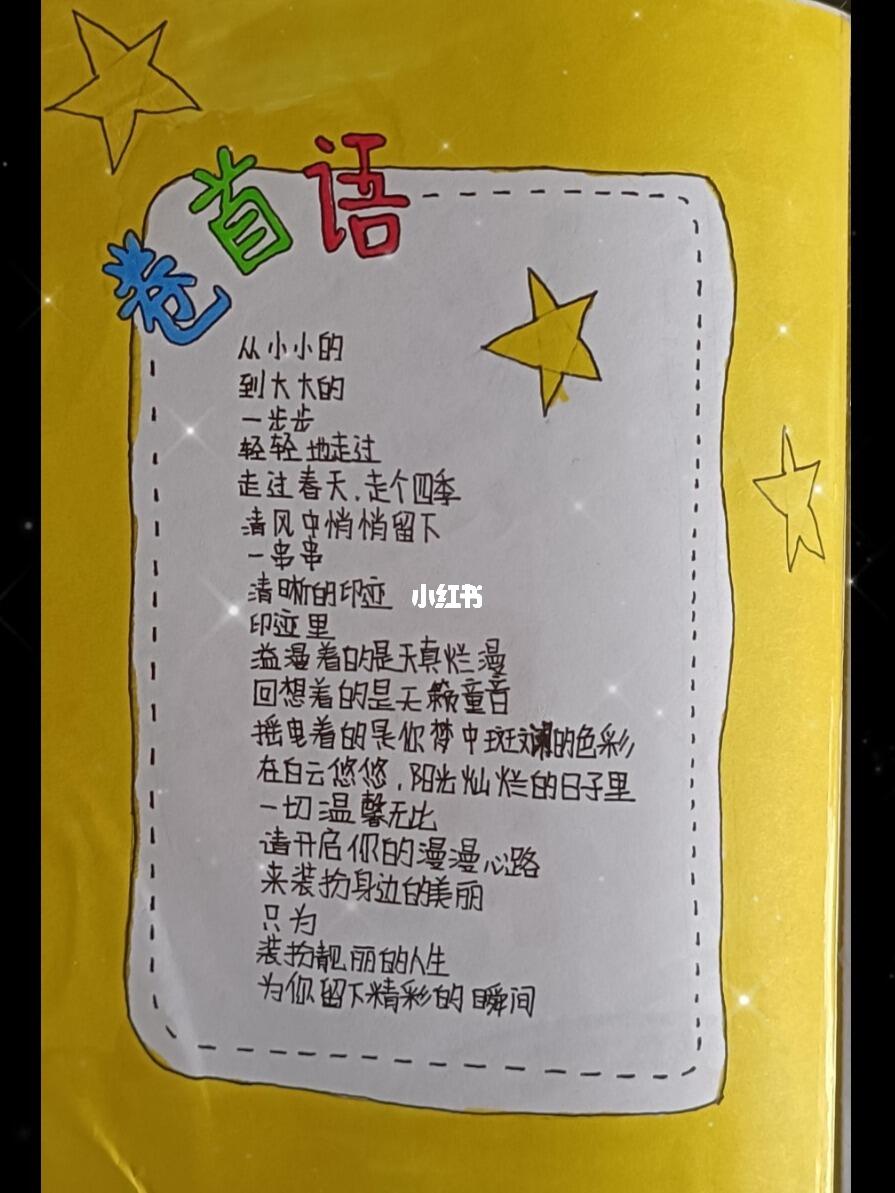 卷首语
从小小的
到大大的
一步步
轻轻地走过
走过春天,走个四季
清风中悄悄留下
一串串
清晰的印迹
小红书
印迹里
溢漫着的是天真烂漫
回想着的是天籁童音
摇曳着的是你梦中斑斓的色彩
在白云悠悠,阳光灿烂的日子里
一切温馨无比
请开启你的漫漫心路
来装扮身边的美丽
只为
装扮靓丽的人生
为你留下精彩的瞬间